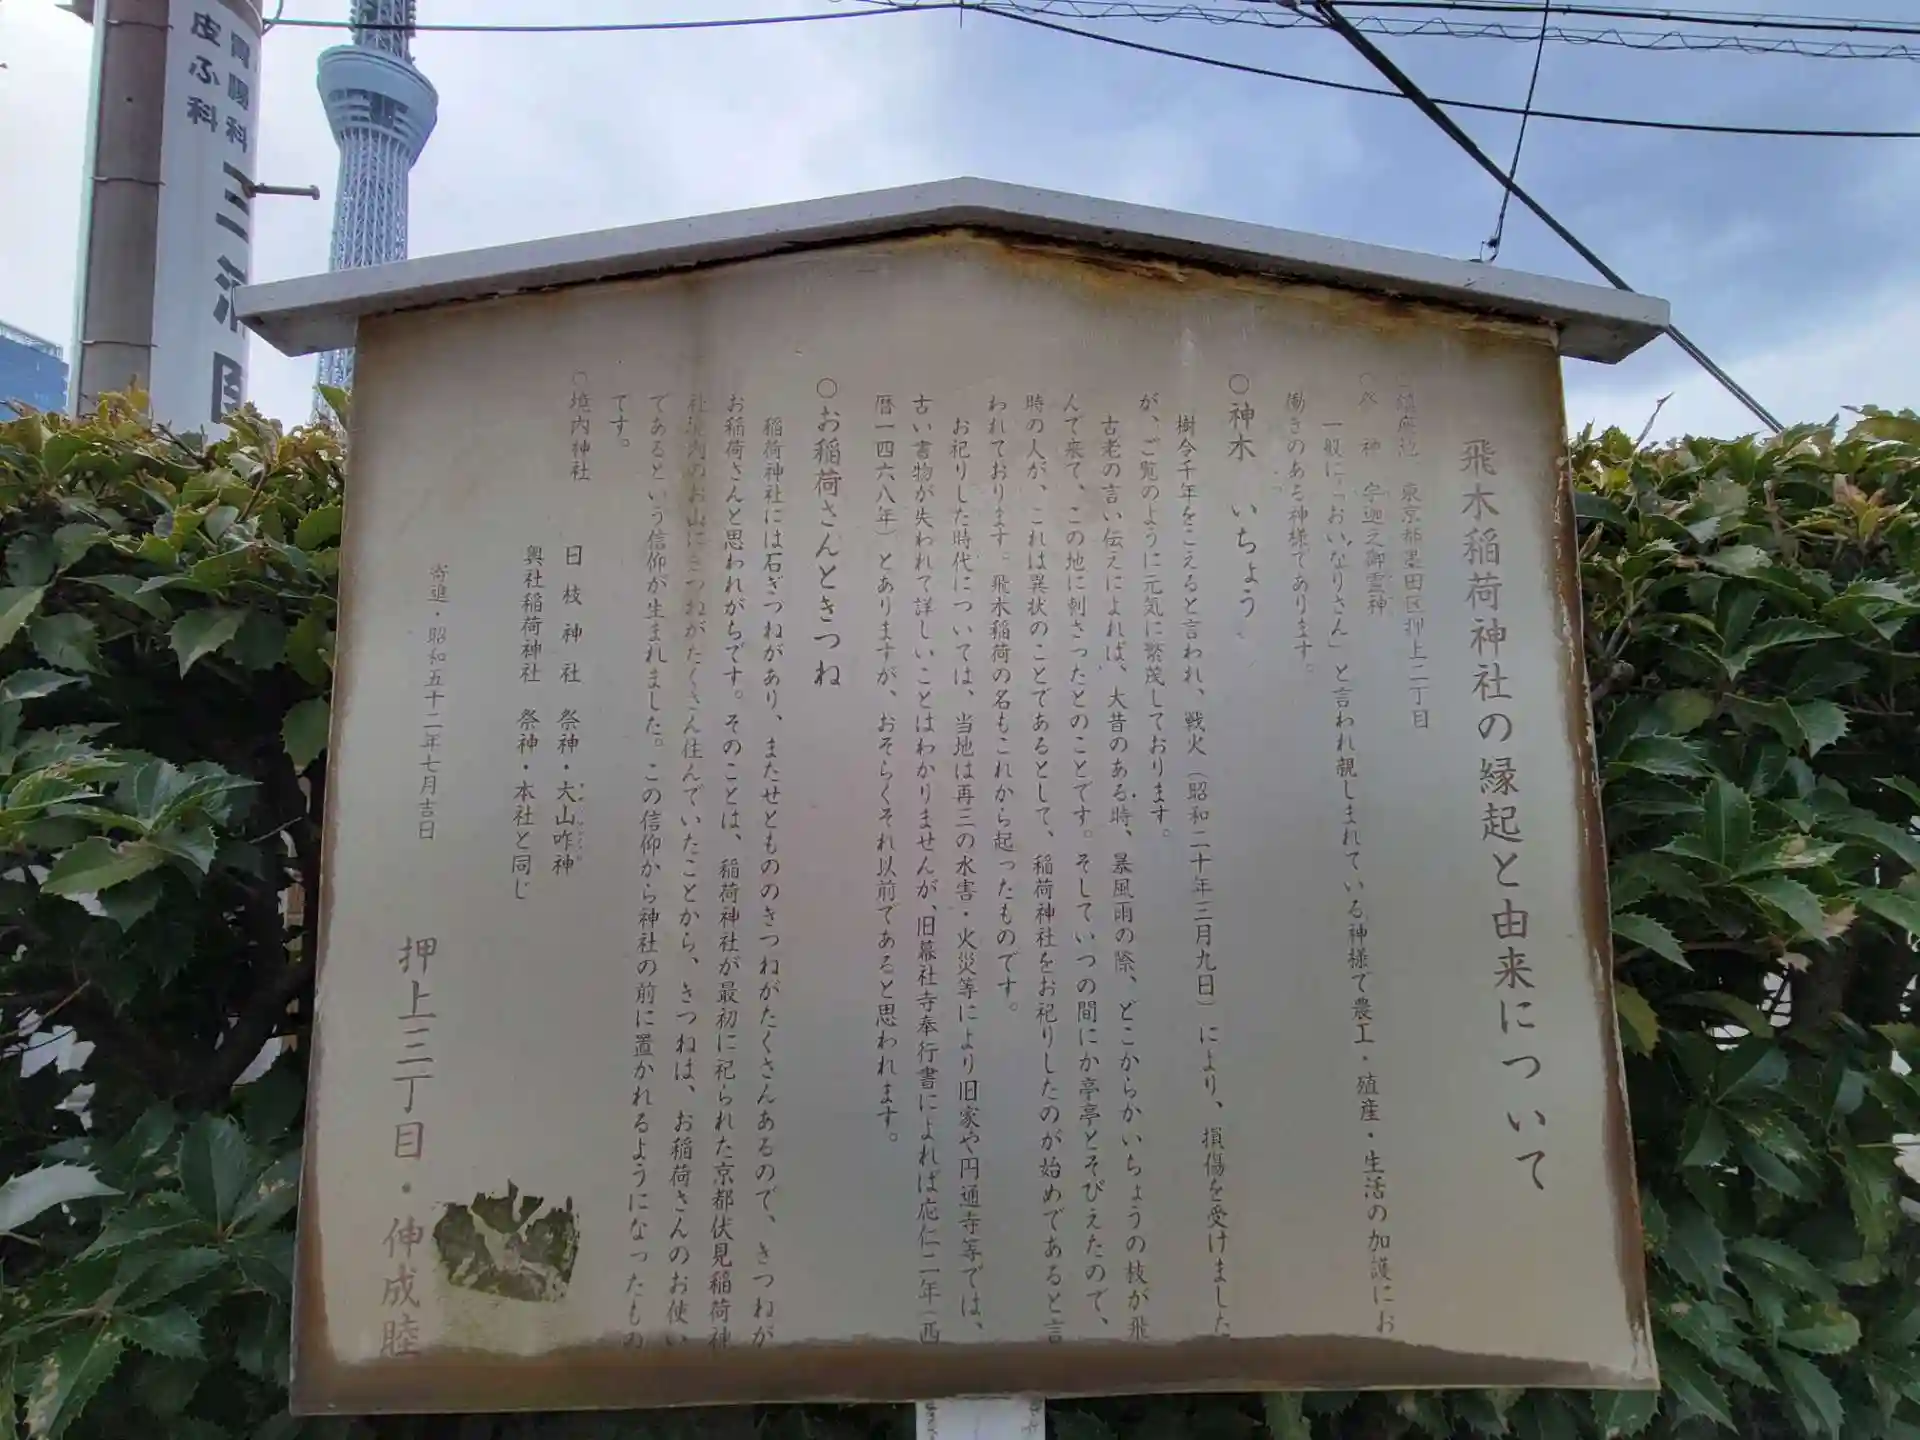 飛木稲荷神社の縁起と由来について
○鎮座地　東京都墨田区押上二丁目
○祭　神　宇迦之御霊神
一般に「おいなりさん」と言われ親しまれている神様で農工・殖産・生活の加護にお
働きのある神様であります。
○神木　いちょう
樹令千年をこえると言われ、戦火（昭和二十年三月九日）により、損傷を受けました
が、ご覧のように元気に繁茂しております。
古老の言い伝えによれば、大昔のある時、暴風雨の際、どこからかいちょうの枝が飛
んで来て、この地に刺さったとのことです。そしていつの間にか亭亭とそびえたので、
時の人が、これは異状のことであるとして、稲荷神社をお祀りしたのが始めであると言
われております。飛木稲荷の名もこれから起ったものです。
お祀りした時代については、当地は再三の水害・火災等により旧家や円通寺等では、
古い書物が失われて詳しいことはわかりませんが、旧幕社寺奉行書によれば応仁二年（西
暦一四六八年）とありますが、おそらくそれ以前であると思われます。
○お稲荷さんときつね
稲荷神社には石ぎつねがあり、またせともののきつねがたくさんあるので、きつねが
お稲荷さんと思われがちです。そのことは、稲荷神社が最初に祀られた京都伏見稲荷神
社境内のお山にきつねがたくさん住んでいたことから、きつねは、お稲荷さんのお使い
であるという信仰が生まれました。この信仰から神社の前に置かれるようになったもの
です。
○境内神社
日枝神社　祭神・大山咋神
奥社稲荷神社　祭神・本社と同じ
寄進・昭和五十二年七月吉日
押上三丁目・伸成睦
胃腸科
皮ふ科
三浦医